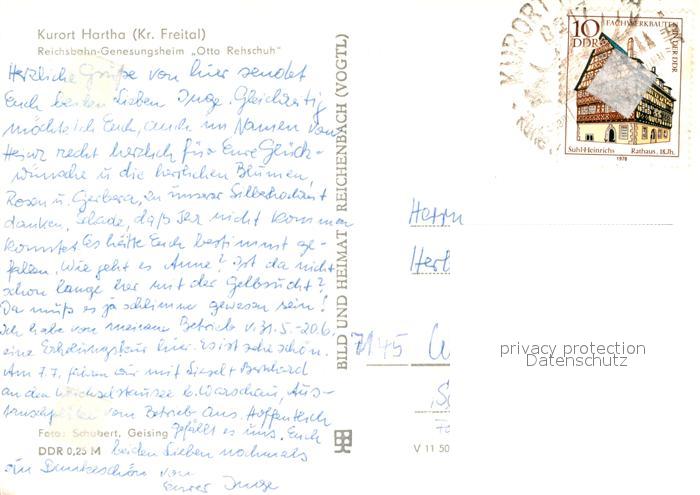 Kurort Hartha (Kr. Freital)
Reichsbahn-Genesungsheim „Otto Rehschuh"
Herzliche Grüße von hier sendet
Euch beiden Lieben Inge. Gleichzeitig
möchte ich Euch, auch im Namen von
Heinz recht herzlich für Eure Glück-
wünsche u. die herrlichen Blumen,
Rosen u. Gerbera, zu unserer Silberhochzeit
danken. Schade, daß Ihr nicht kommen
konntet. Es hätte Euch bestimmt ge-
fallen. Wie geht es Anne? Ist da nicht
schon lange her mit der Gelbsucht?
Da muß es ja schlimm gewesen sein!
Ich habe von meinem Betrieb v. 31.5.-20.6.
eine Erholungskur hier. Es ist sehr schön.
Am 7.7. fahren wir mit Liesel + Bernhard
an den Weichselstausee b. Warschau, Aus-
tauschplätze vom Betrieb aus. Hoffentlich
gefällt es uns. Euch
beiden Lieben nochmals
ein Dankeschön von
Eurer Inge
Foto: Schubert, Geising
DDR 0,25 M
BILD UND HEIMAT REICHENBACH (VOGTL)
V 11 50
KURORT
10
DDR
FACHWERKBAUTEN IN DER DDR
Suhl-Heinrichs Rathaus, 16.Jh.
1978
Herrn
7145
privacy protection
Datenschutz